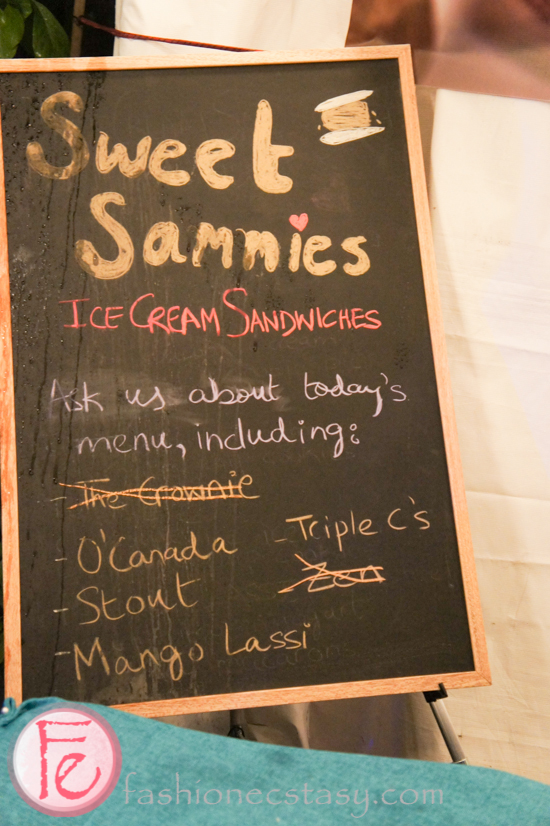 Sweet
Sammies
ICE CREAM SANDWICHES
Ask us about today's
menu, including:
- The Crownie
- O'Canada
- Stout
- Mango Lassi
- Triple C's
- Zen
Fe
fashionecstasy.com